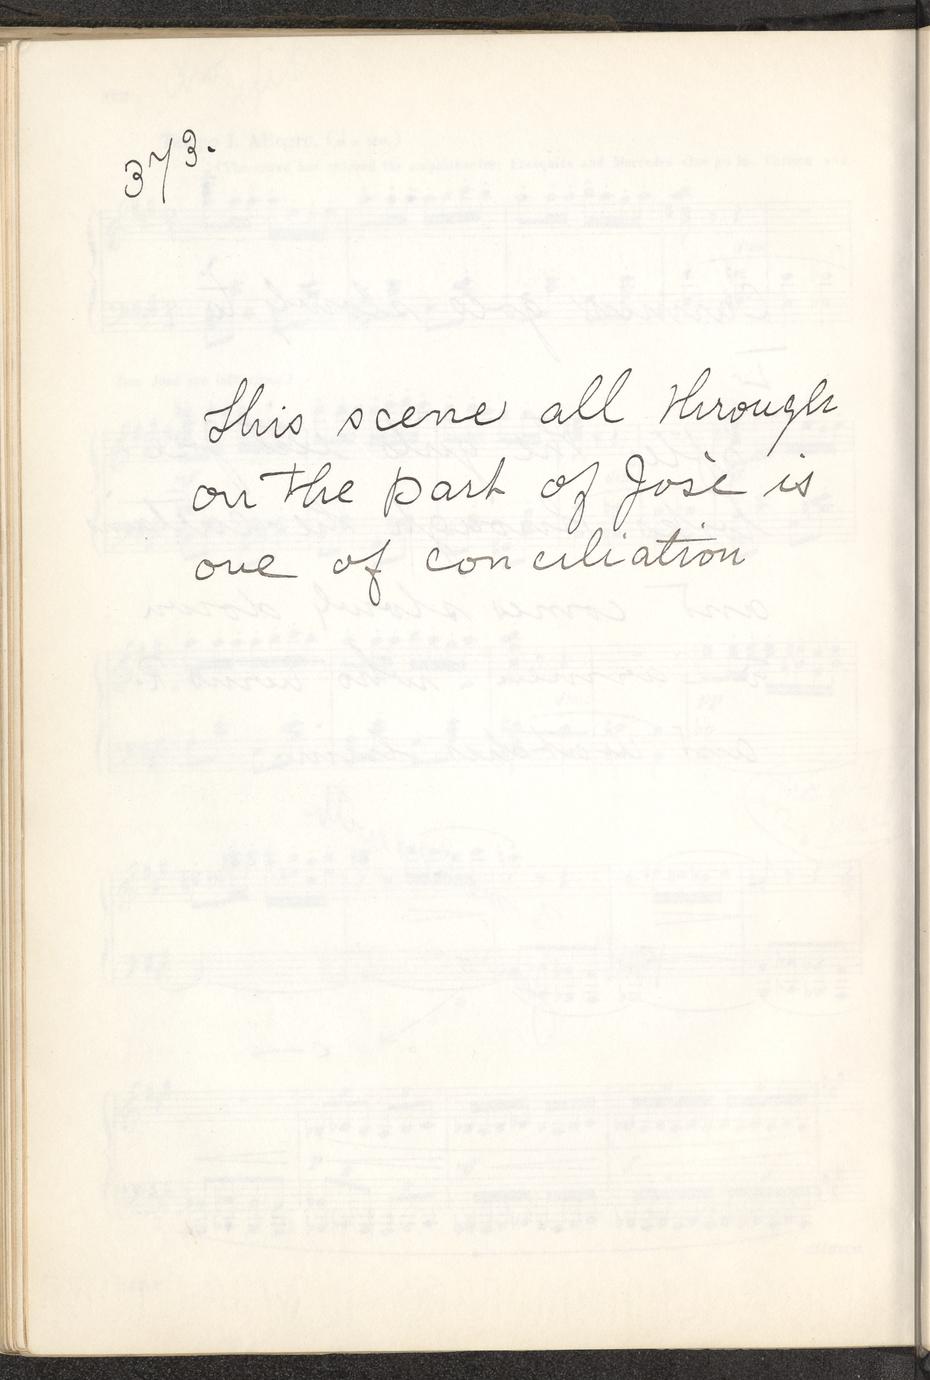 373.
This scene all through
on the part of José is
one of conciliation